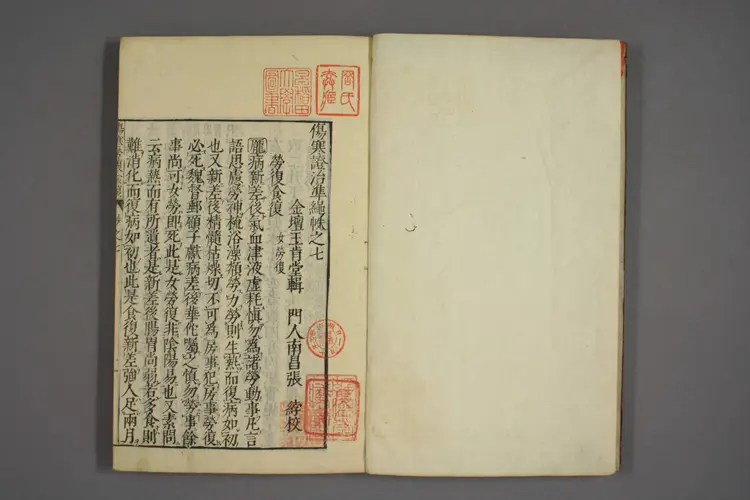 傷寒證治準繩帙之七
金壇王肯堂輯 門人南昌張 綍校
勞復食復 女勞復
龐病新差後氣血津液虛耗慎勿為諸勞動事凡言
語思慮勞神梳浴澡頮勞力勞則生熱而復病如初
也又新差後精髓枯燥切不可為房事犯房事勞復
必死魏督郵顧子獻病差後華佗囑之慎勿勞事餘
事尚可女勞即死此是女勞復非陰陽易也又素問
云病熱而有所遺者是新差後腸胃尚弱若多食則
難消化而復病如初也此是食復新差強人足兩月
早稲田大學圖書